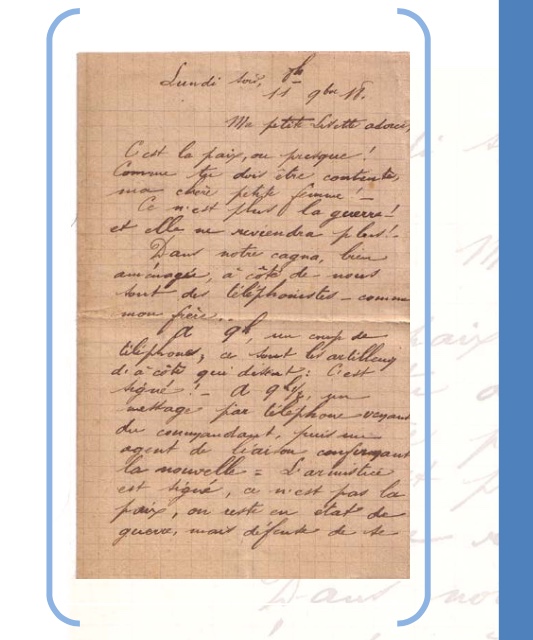 Lundi soir, 8h
11 9bre 18.
Ma petite Lisette adorée,
C'est la paix, ou presque !
Comme tu dois être contente,
ma chère petite femme ! –
Ce n'est plus la guerre !
et elle ne reviendra plus ! –
Dans notre cagna, bien
aménagée, à côté de nous
sont des téléphonistes – comme
mon frère..
A 9h, un coup de
téléphone, ce sont les artilleurs
d'à côté qui disent : C'est
signé ! – A 9h1/2, un
message par téléphone venant
du commandant, puis un
agent de liaison confirmant
la nouvelle = L'armistice
est signé, ce n'est pas la
paix, on reste en état de
guerre, mais défense de se